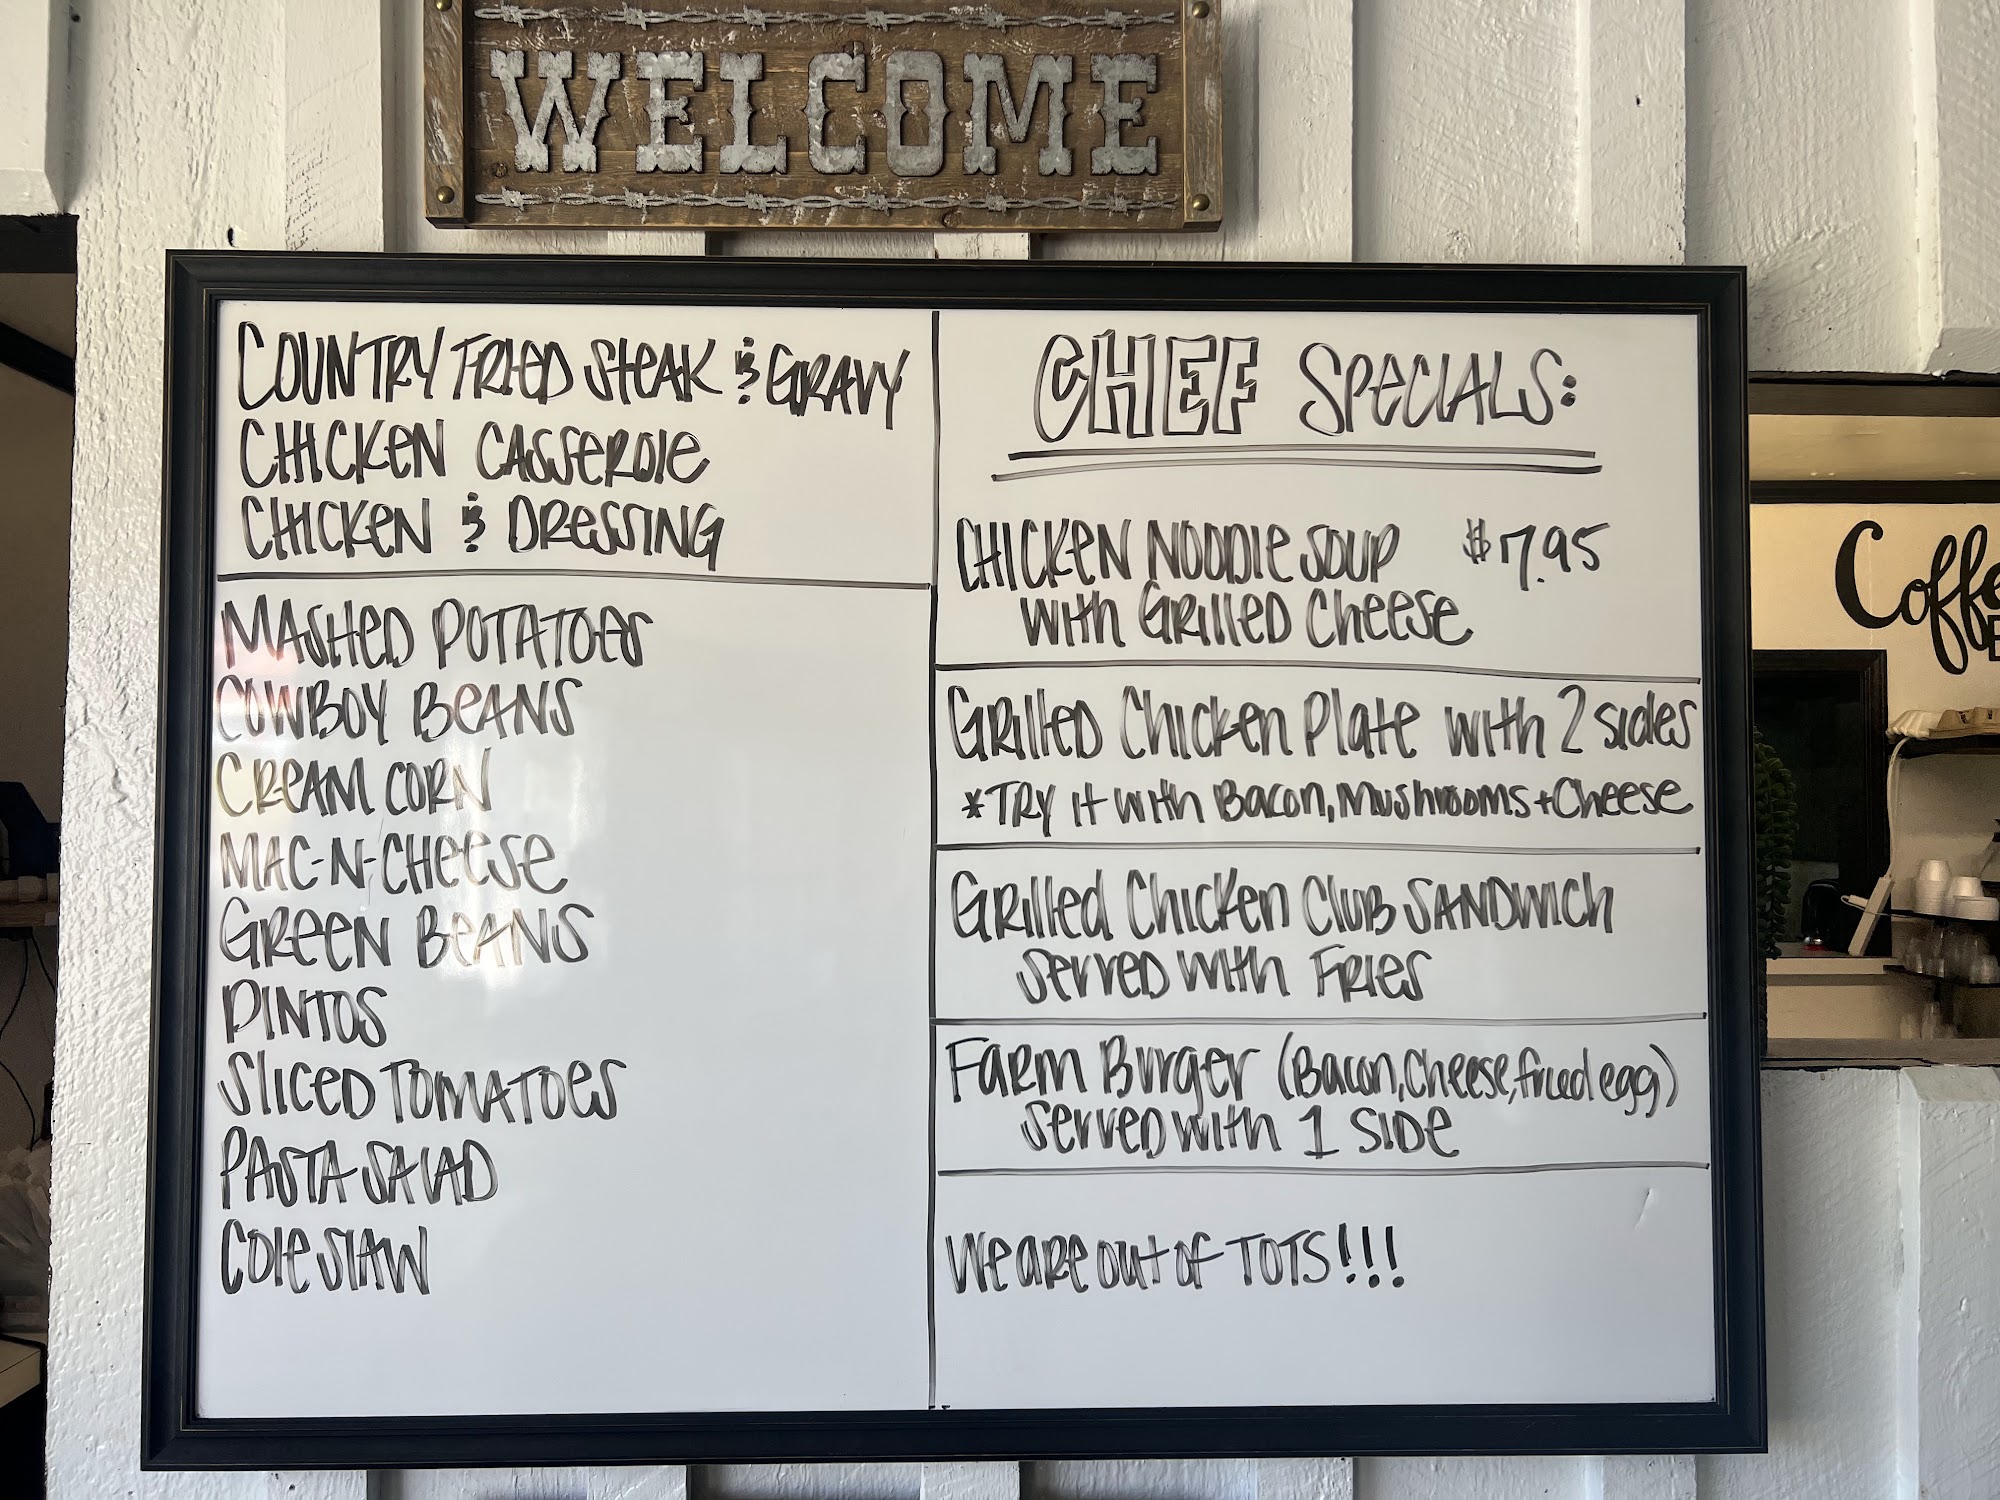 WELCOME
COUNTRY FRIED STEAK & GRAVY
CHICKEN CASSEROLE
CHICKEN & DRESSING
MASHED POTATOES
COWBOY BEANS
CREAM CORN
MAC-N-CHEESE
GREEN BEANS
PINTOS
SLICED TOMATOES
PASTA SALAD
COLE SLAW
CHEF SPECIALS:
CHICKEN NOODLE SOUP $7.95
WITH GRILLED CHEESE
GRILLED CHICKEN PLATE WITH 2 SIDES
*TRY IT WITH BACON, MUSHROOMS + CHEESE
GRILLED CHICKEN CLUB SANDWICH
SERVED WITH FRIES
FARM BURGER (BACON, CHEESE, FRIED EGG)
SERVED WITH 1 SIDE
WE ARE OUT OF TOTS!!!
Coffe